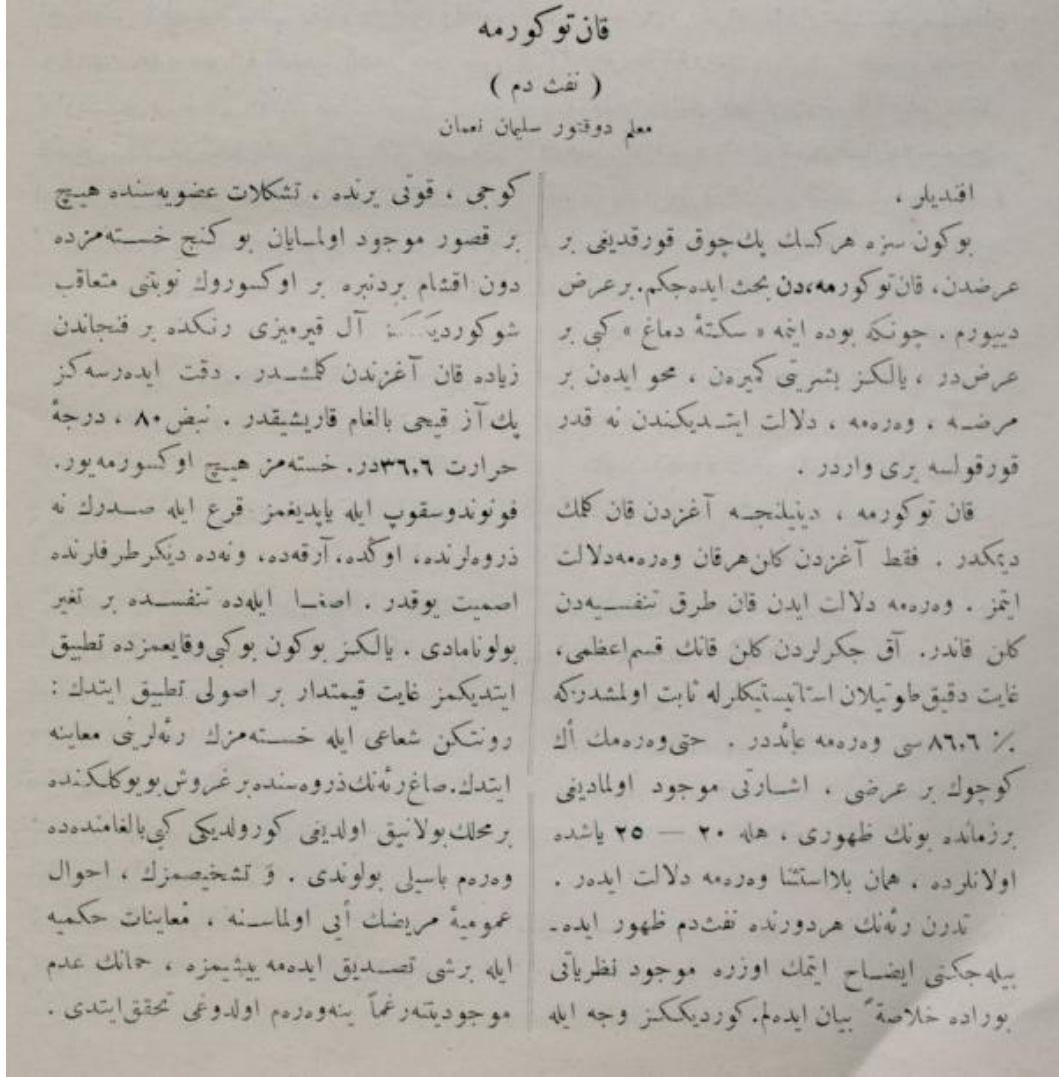 قان توكورمه
( نفث دم )
معلم دوقتور سلیمان نعمان
افندیلر ،
بوكون سزه هركسك پك‌چوق قورقدیغی بر
عرضدن، قان‌توكورمه‌،دن بحث ایده‌جكم. بر عرض
دییورم . چونكه بوده اینمه « سكتهٔ دماغ » كبی بر
عرض‌در ، یالكز بشریتی كمیره‌ن ، محو ایده‌ن بر
مرضـه ، وه‌رمه ، دلالت ایتـدیكندن نه قدر
قورقولسه یری واردر .
قان توكورمه ، دینیلنجـه آغزدن قان كلمك
دیمكدر . فقط آغزدن كلن هر قان وه‌رمه دلالت
ایتمز . وه‌رمه دلالت ایدن قان طرق تنفســیه‌دن
كلن قاندر. آق جكرلردن كلن قانك قسم‌اعظمی،
غایت دقیق طوتیلان استاتیستیكلرله ثابت اولمشدركه
٪ ٨٦،٦ سی وه‌رمه عائددر . حتی وه‌رمك اڭ
كوچوك بر عرضی ، اشـارتی موجود اولمادیغی
برزمانده بونك ظهوری ، هله ٢٠ — ٢٥ یاشده
اولانلرده ، همان بلااستثنا وه‌رمه دلالت ایدر .
تدرن رئه‌نك هردورنده نفث‌دم ظهور ایده‌ـ
بیله‌جكنی ایضـاح ایتمك اوزره موجود نظریاتی
بوراده خلاصةً بیان ایده‌لم. كوردیككز وجه ایله
كوجی ، قوتی یرنده ، تشكلات عضویه‌سنده هیـچ
بر قصور موجود اولمـایان بو كنج خسـته‌مزده
دون اقشام بردنبره بر اوكسوروك نوبتنی متعاقب
شو كوردیككز آل قیرمیزی رنكده بر فنجاندن
زیاده قان آغزندن كلمشـدر . دقت ایدرسه‌كز
پك آز قیحی بالغام قاریشیقدر . نبض ٨٠ ، درجهٔ
حرارت ٣٦،٦در. خسته‌مز هیـچ اوكسورمه‌یور.
فونوندوسقوپ ایله یاپدیغمز قرع ایله صـدرك نه
ذروه‌لرنده، اوكده، آرقه‌ده، ونه‌ده دیكر طرفلرنده
اصمیت یوقدر . اصغـا ایله‌ده تنفسـده بر تغیر
بولونامادی . یالكز بوكون بوكبی وقایعمزده تطبیق
ایتدیكمز غایت قیمتدار بر اصولی تطبیق ایتدك :
رونتكن شعاعی ایله خسـته‌مزك رئه‌لرینی معاینه
ایتدك. صاغ رئه‌نك ذروه‌سنده بر غروش بویوكلكنده
بر محلك بولانیق اولدیغی كورولدیكی كبی بالغامنده‌ده
وه‌رم باسیلی بولوندی . و تشخیصمزك ، احوال
عمومیهٔ مریضك أیی اولماسـنه ، معاینات حكمیه
ایله برشی تصـدیق ایده‌مه ییشیمزه ، حمانك عدم
موجودیتنه رغماً ینه وه‌رم اولدوغی تحقق ایتدی .